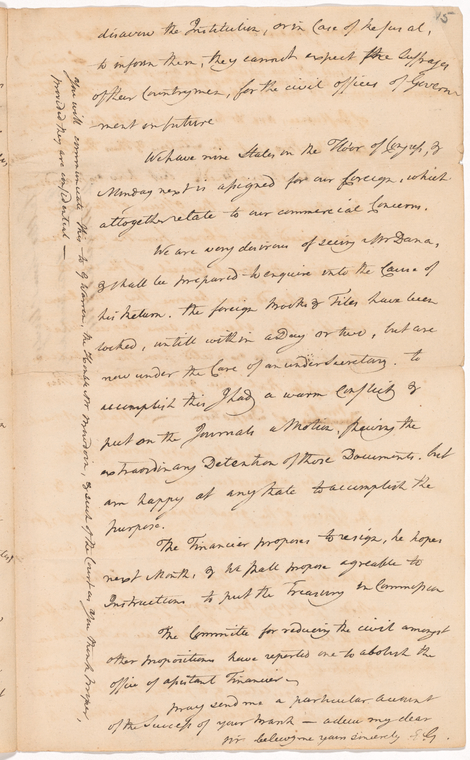 15
disavow the Institution, or in Case of Refusal,
to inform them, they cannot expect the Suffrages
of their Countrymen, for the civil offices of Govern-
ment in future
We have nine States on the Floor of Congress, &
Monday next is assigned for our foreign, which
altogether relate to our commercial Concerns.
We are very desirous of seeing Mr Dana,
& shall be prepared to enquire into the Cause of
his Return. the foreign Books & Files have been
locked, untill within a day or two, but are
now under the Care of an under Secretary. to
accomplish this I had a warm Conflict &
put on the Journals a Motion, shewing the
extraordinary Detention of those Documents. but
am happy at any Rate to accomplish the
purpose.
The Financier proposes to resign, he hopes
next Month, & we shall propose agreable to
Instructions to put the Treasury in Commission
The Committee for reducing the civil amongst
other propositions have reported one to abolish the
office of assistant Financier
pray send me a particular Account
of the Success of your — adieu my dear
Sir believe me yours sincerely E G.
You will communicate this to G Warren, the Honble Mr & such of the Court as you think proper,
provided they are confidential —